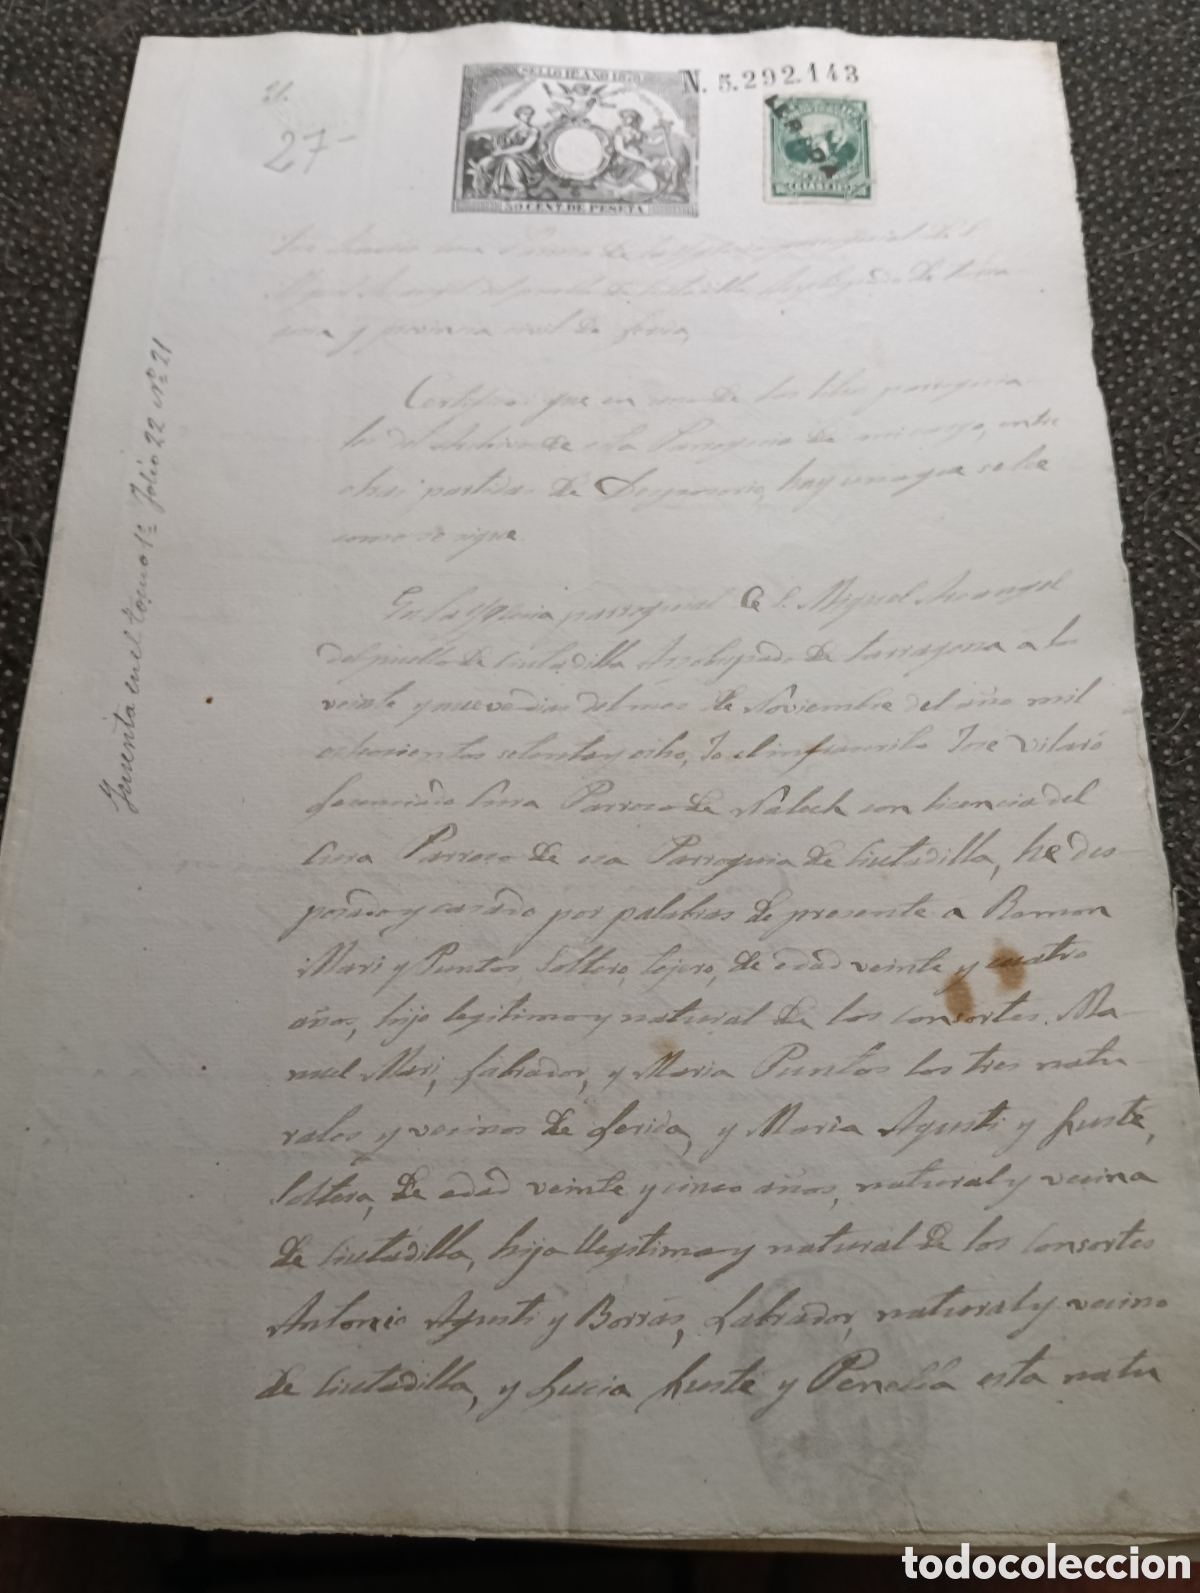 SELLO 11º AÑO 1878
N. 5.292.143
50 CENT. DE PESETA
27-
y provincia civil de Lerida
Certifico: que en uno de los libros parroquia-
les del Archivo de esta Parroquia de mi cargo, entre
otras partidas de Desposorios, hay una que se lee
como se sigue
En la Yglesia parroquial de S. Miguel Arcangel
del pueblo de Ciutadilla Arzobispado de Tarragona a los
veinte y nueve dias del mes de Noviembre del año mil
ochocientos setenta y ocho, Yo el infrascrito José Vilaró
Licenciado Cura Parroco de Nalech con licencia del
Cura Parroco de esa Parroquia de Ciutadilla, he des-
posado y casado por palabras de presente a Ramon
Mari y Puntos, Soltero, tejero, de edad veinte y cuatro
años, hijo legitimo y natural de los consortes Ma-
nuel Mari, labrador, y Maria Puntos los tres natu-
rales y vecinos de Lerida, y Maria Agusti y Fusté,
Soltera, de edad veinte y cinco años, natural y vecina
de Ciutadilla, hija llegitima y natural de los Consortes
Antonio Agusti y Borras, Labrador, natural y vecino
de Ciutadilla, y Lucia Fusté y Penella esta natu
en el tomo 1º folio 22 Nº 21
todocoleccion